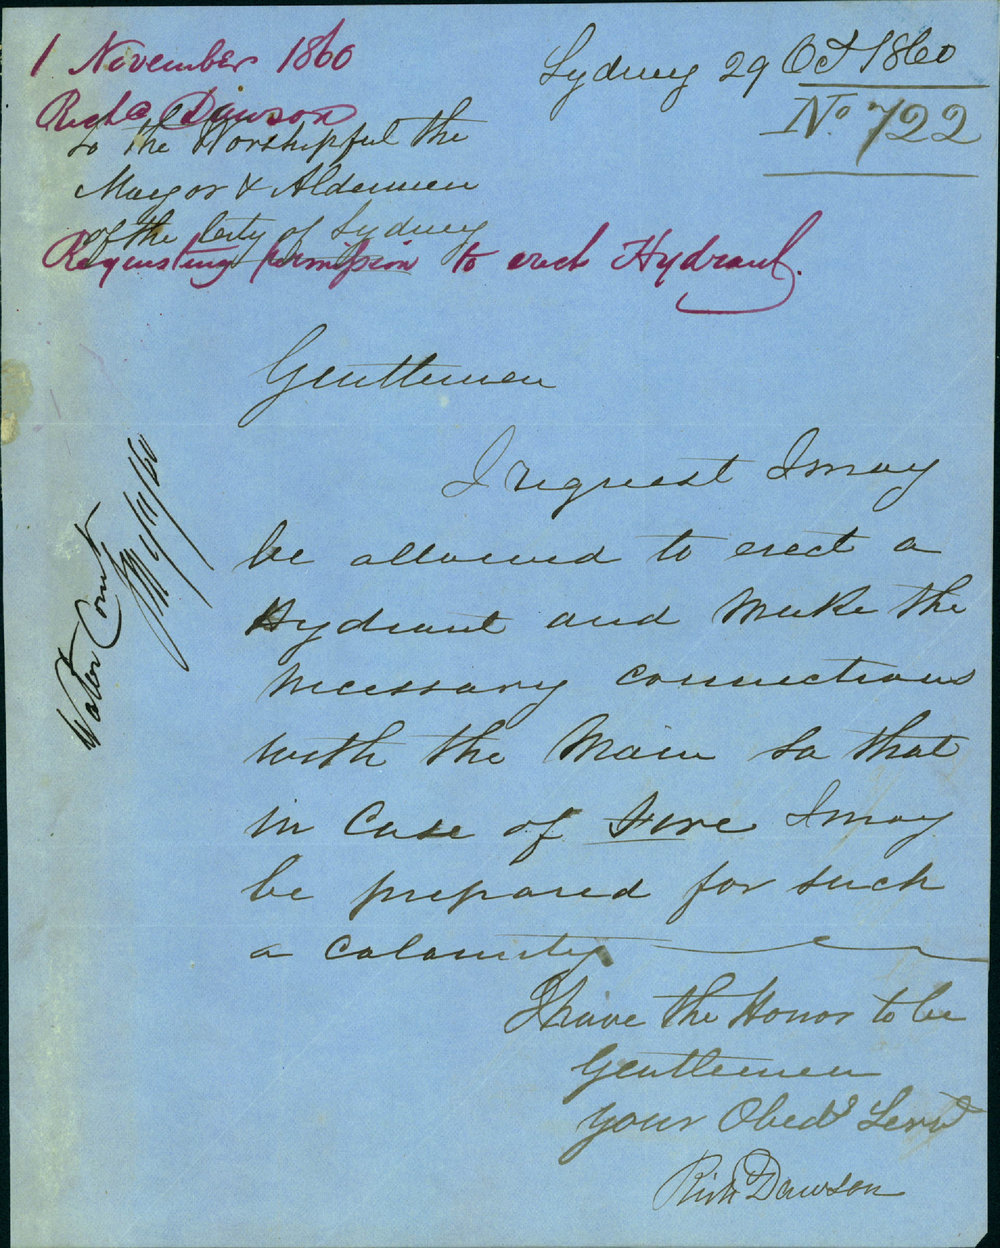 1 November 1860
Sydney 29 Oct 1860
No. 722
Richd Dawson
To the Worshipful the
Mayor & Aldermen
of the City of Sydney
Requesting permission to erect Hydrant.
Gentlemen
I request I may
be allowed to erect a
Hydrant and make the
necessary connections
with the Main so that
in Case of Fire I may
be prepared for such
a calamity
I have the Honor to be
Gentlemen
your Obedt Servt
Richd Dawson
Water Comt
/11/60